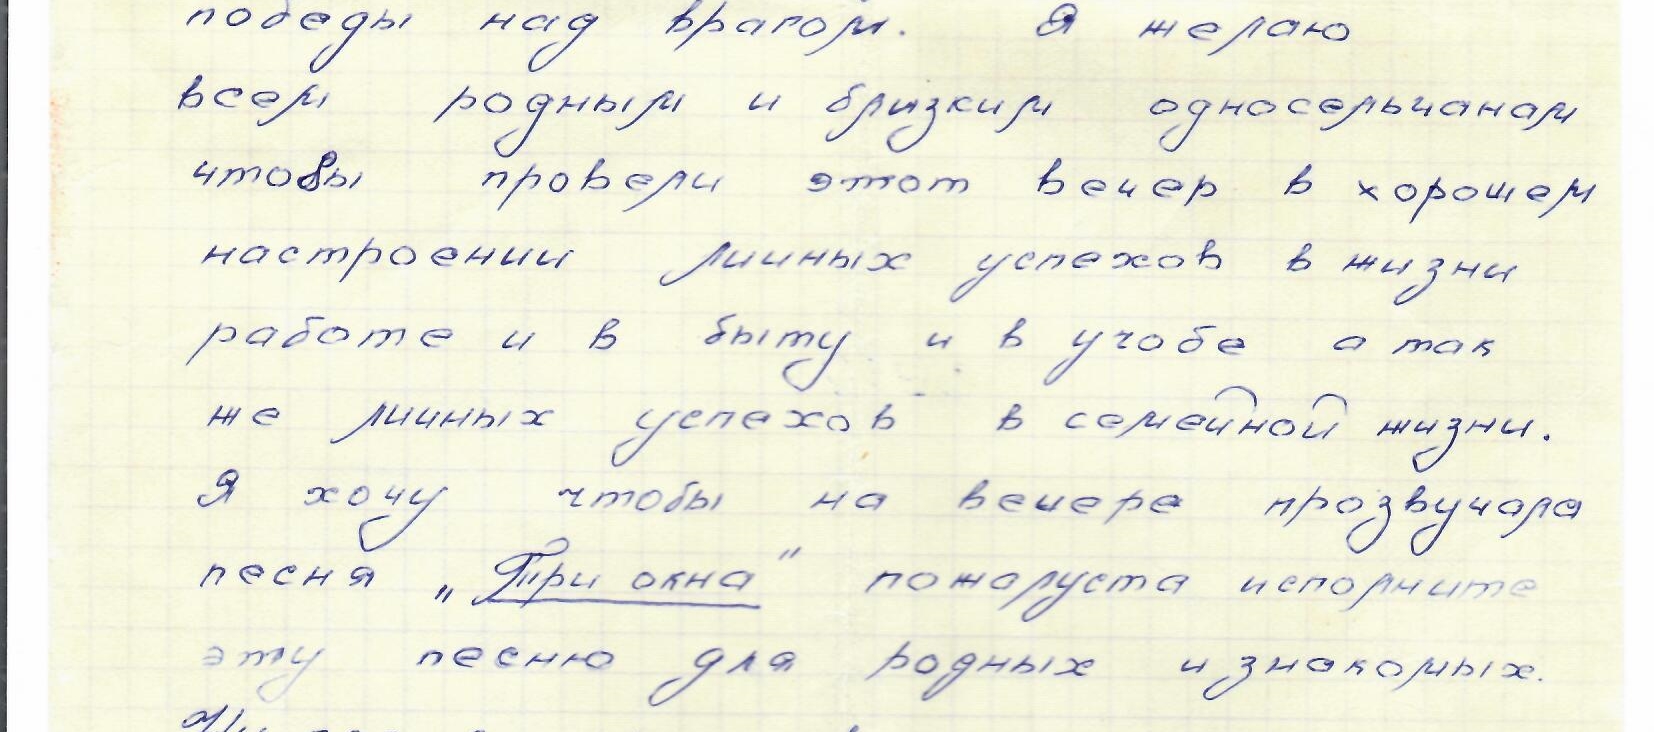 победы над врагом. Я желаю
всем родным и близким односельчанам
чтобы провели этот вечер в хорошем
настроении личных успехов в жизни
работе и в быту и в учобе а так
же личных успехов в семейной жизни.
Я хочу чтобы на вечере прозвучала
песня „Три окна" пожалуста исполните
эту песню для родных и знакомых.